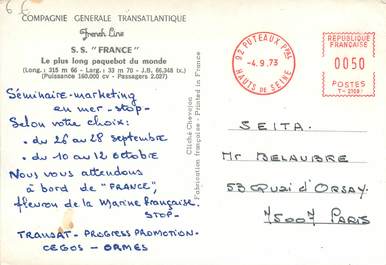 6 6
COMPAGNIE GENERALE TRANSATLANTIQUE
French Line
S.S. "FRANCE"
Le plus long paquebot du monde
(Long. : 315 m 66 - Larg. : 33 m 70 - J.B. 66,348 tx.)
(Puissance 160.000 cv - Passagers 2.027)
Séminaire-marketing
en mer - STOP -
Selon votre choix:
• du 26 au 28 septembre
• du 10 au 12 octobre
Nous vous attendons
à bord de "FRANCE",
fleuron de la Marine Française.
STOP -
TRANSAT - PROGRESS PROMOTION -
CEGOS - ORMES
Cliché Chevojon
Fabrication française - Printed in France
92 PUTEAUX PPAL
- 4. 9. 73
HAUTS DE SEINE
REPUBLIQUE
FRANÇAISE
0050
POSTES
SEITA.
Mr DELAUBRE
53 Quai d'ORSAY.
75007 PARIS